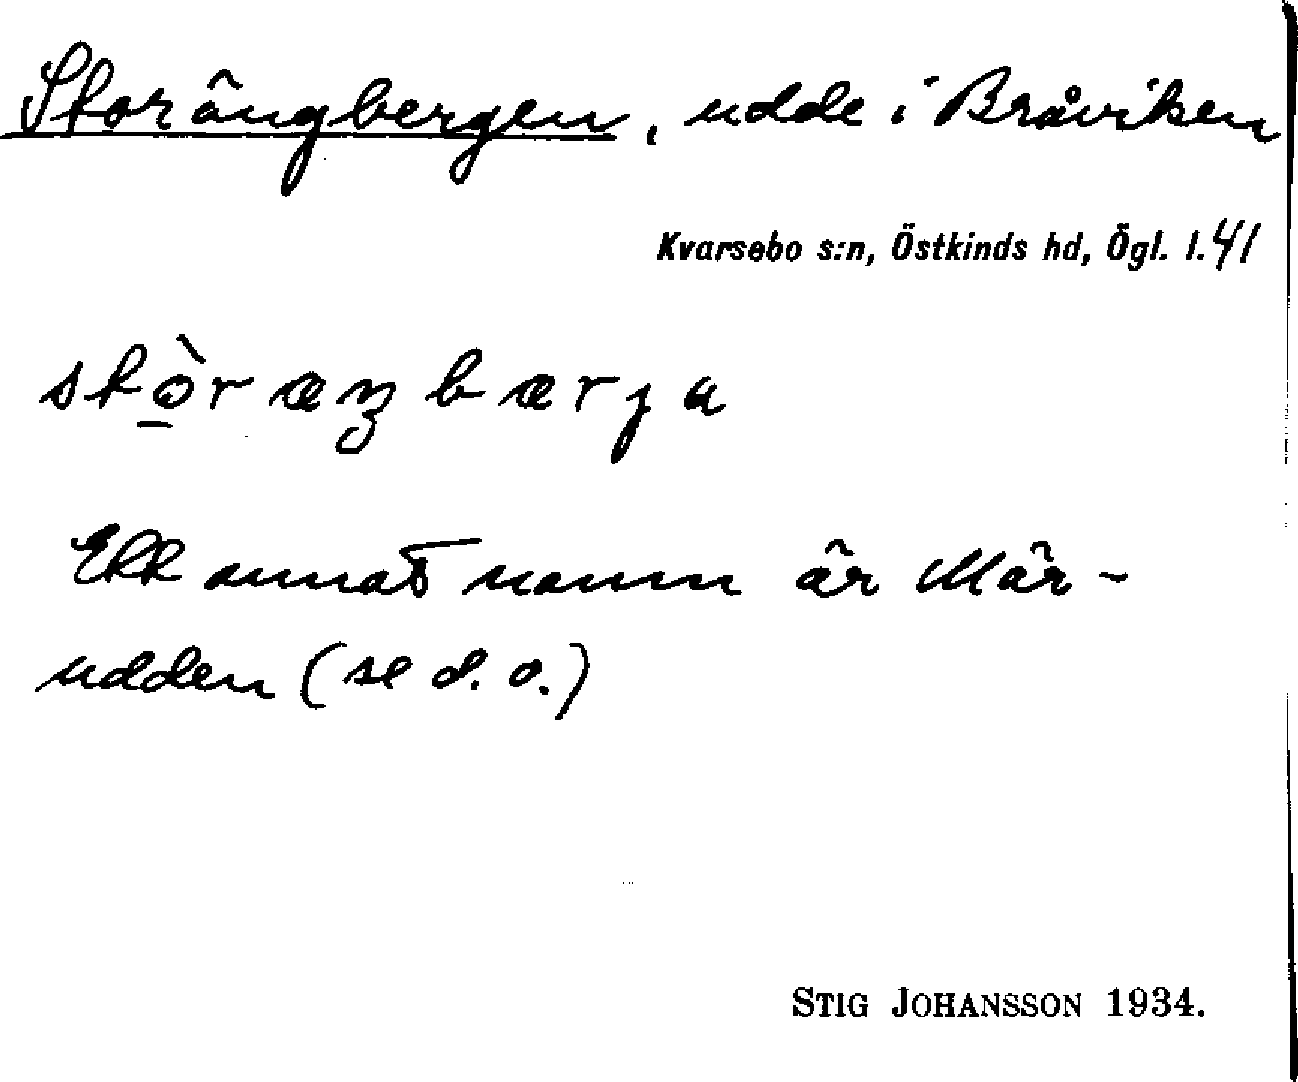 Storängbergen, udde i Bråviken
Kvarsebo s:n, Östkinds hd, Ögl. l. 41
stò̠ræŋbærja
Ett annat namn är Mär-
udden (se d. o.)
STIG JOHANSSON 1934.